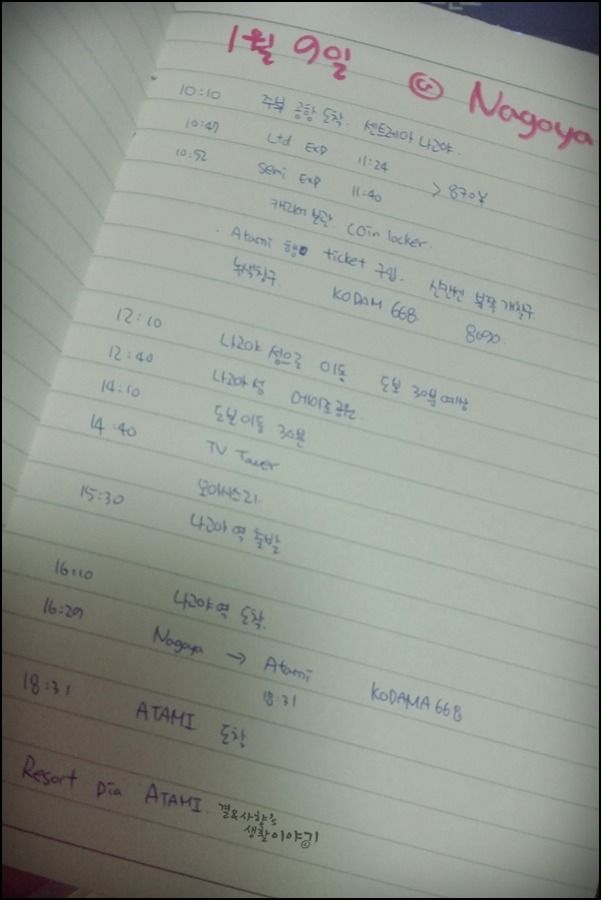 1월 9일 @ Nagoya
10:10 주부 공항 도착. 센트레아 나고야.
10:47 Ltd Exp 11:24
10:52 Semi Exp 11:40 > 870¥
캐리어 보관 Coin locker.
· Atami 행 ticket 구입. 신칸센 북쪽 개찰구.
녹색창구. KODAM 668 8090.
12:10 나고야 성으로 이동 도보 30분 예상
12:40 나고야성 메이죠공원
14:10 도보이동 30분
14:40 TV Tower
오아시스21.
15:30 나고야역 출발
16:10 나고야역 도착.
16:29 Nagoya → Atami KODAMA 668
18:31
18:31 ATAMI 도착
Resort Dia ATAMI.
결&사랑's
생활이야기